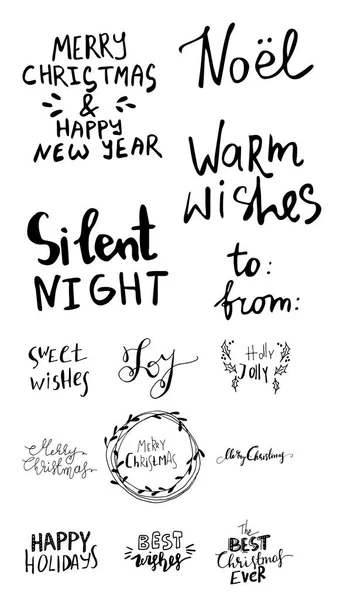 MERRY
CHRISTMAS
&
HAPPY
NEW YEAR
Noël
WARM
WisHes
Silent
NIGHT
to:
from:
sweet
wishes
Joy
Holly
Jolly
Merry
Christmas
MERRY
CHRISTMAS
Merry Christmas
HAPPY
HOLIDAYS
BEST
wishes
The
BEST
Christmas
EVER